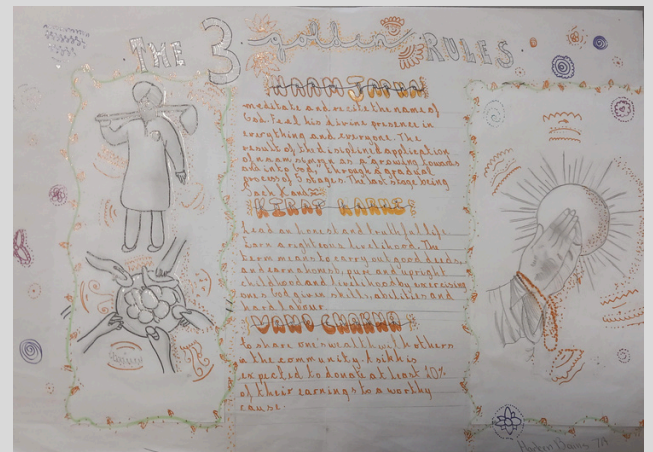 THE 3 golden RULES
NAAM JAPNA
meditate and recite the name of
God. Feel his divine presence in
everything and everyone. The
result of the disiplined application
of naam simran is a growing towards
and into God, through a gradual
process of 5 stages. The last stage being
Sach Khand
KIRAT KARNI
Lead an honest and truthful life
Earn a righteous livelihood. The
term means to carry out good deeds,
and earn a honest, pure and upright
childhood and livelihood by exercising
ones God given skills, abilities and
hard labour
VAND CHAKNA
to share one's wealth with others
in the community. A sikh is
expected to donate at least 10%
of their earnings to a worthy
cause.